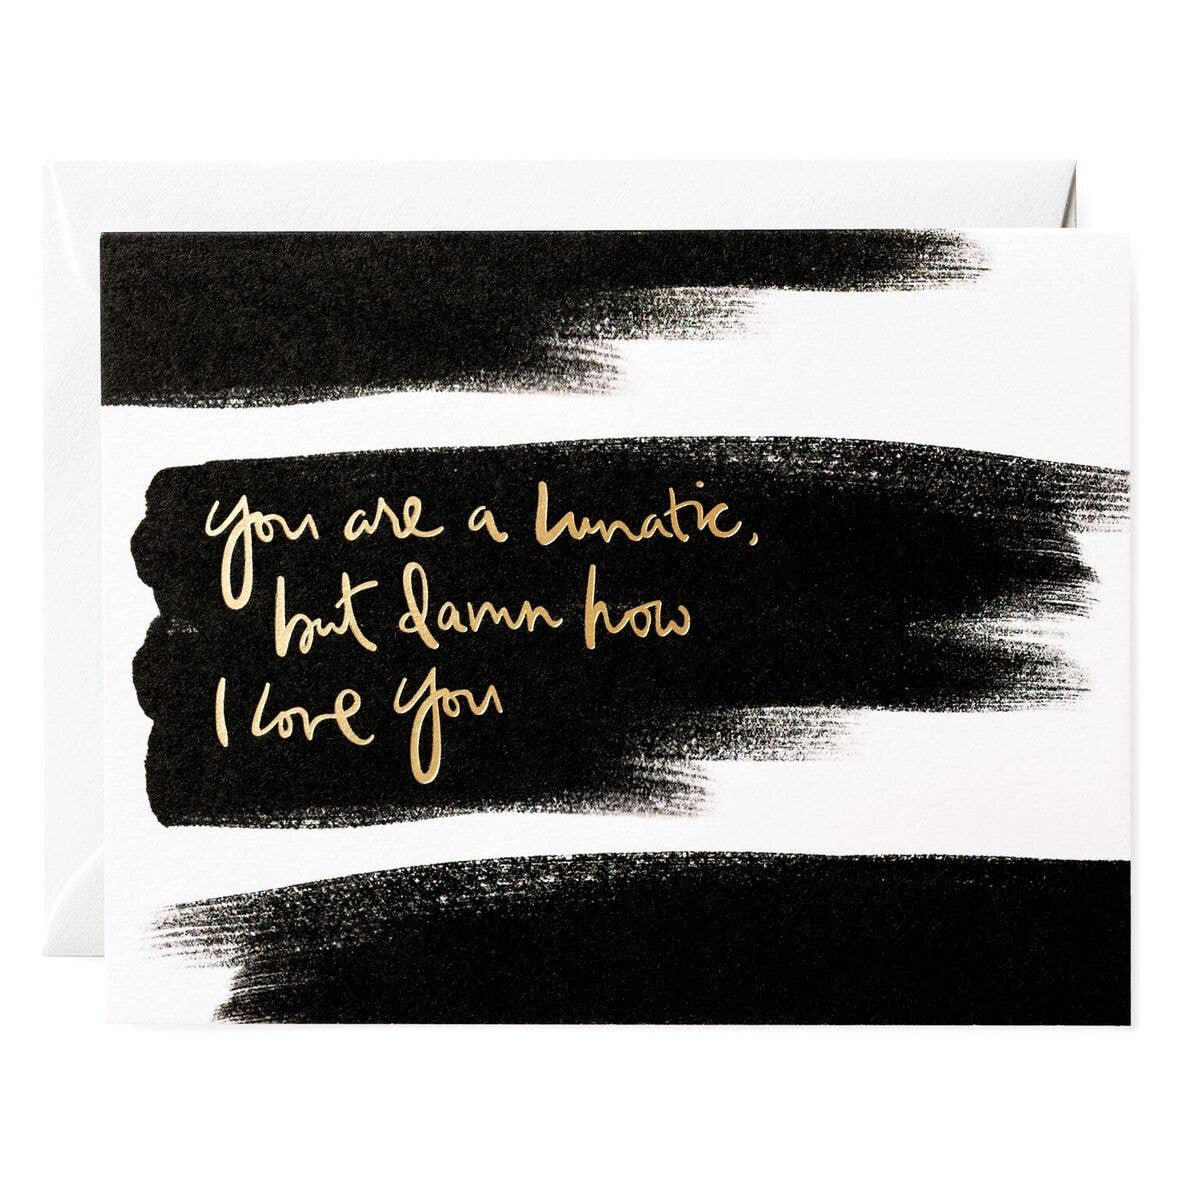 you are a lunatic,
but damn how
I love you